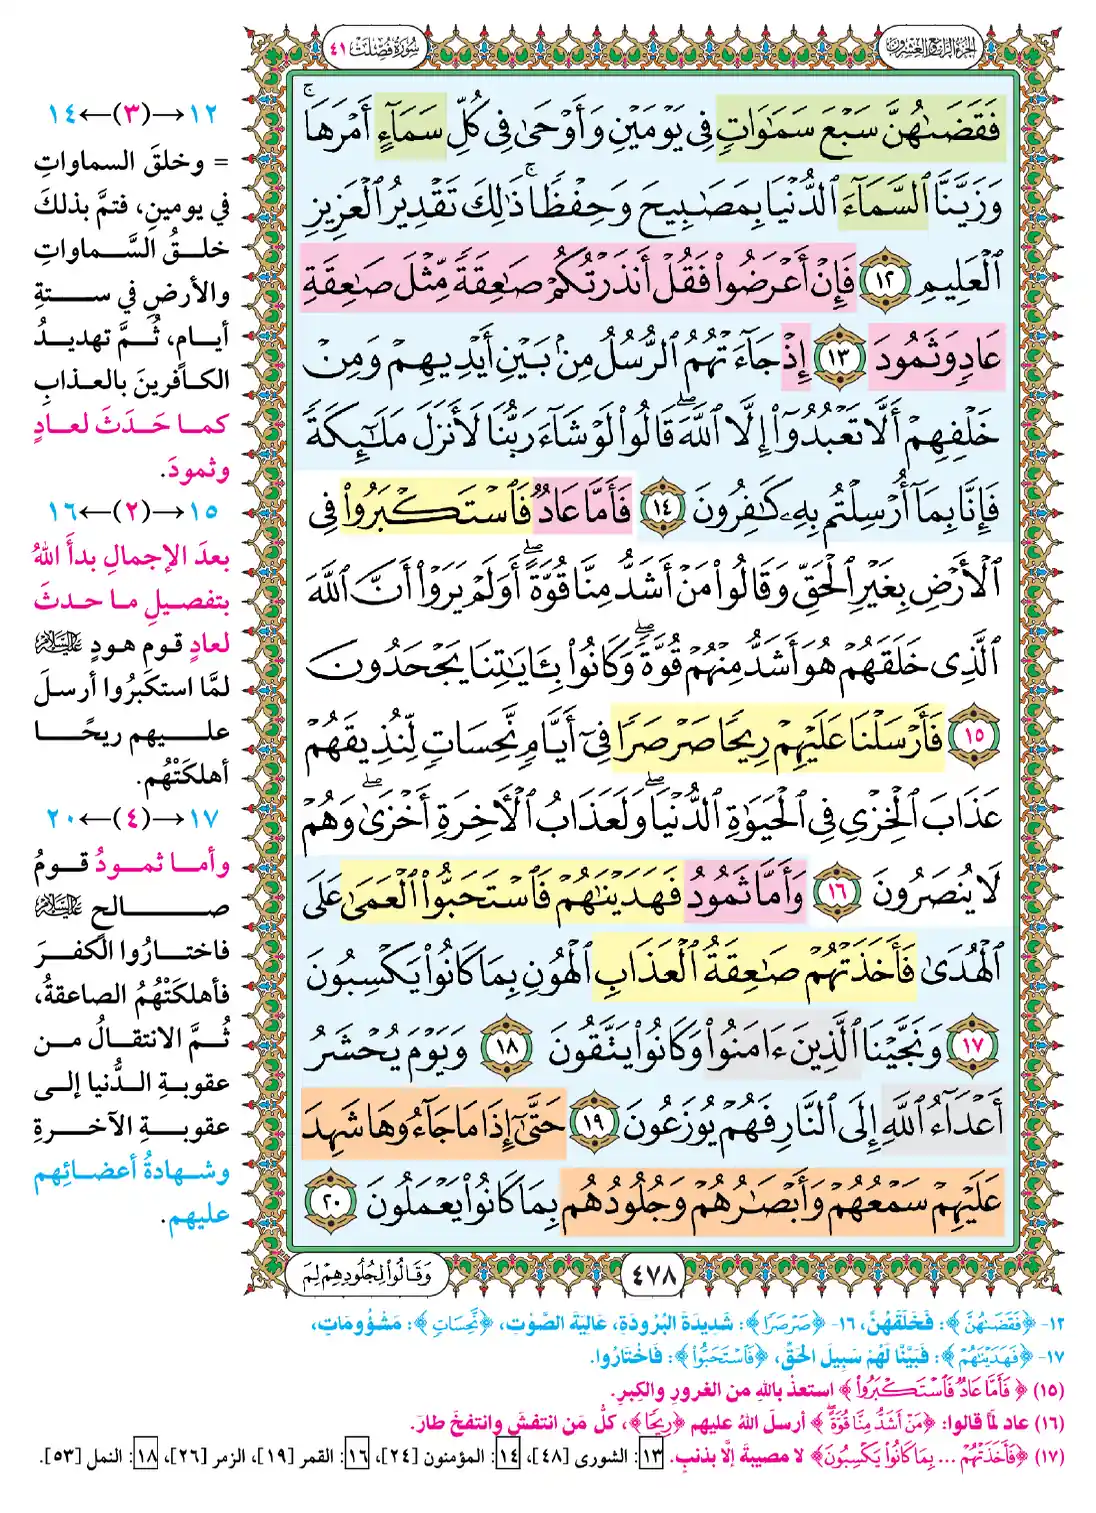 الجزء الرابع والعشرون
سورة فصلت ٤١
فَقَضَىٰهُنَّ سَبْعَ سَمَٰوَاتٍ فِي يَوْمَيْنِ وَأَوْحَىٰ فِي كُلِّ سَمَآءٍ أَمْرَهَا ۚ
وَزَيَّنَّا ٱلسَّمَآءَ ٱلدُّنْيَا بِمَصَٰبِيحَ وَحِفْظًا ۚ ذَٰلِكَ تَقْدِيرُ ٱلْعَزِيزِ
ٱلْعَلِيمِ ١٢ فَإِنْ أَعْرَضُوا۟ فَقُلْ أَنذَرْتُكُمْ صَٰعِقَةً مِّثْلَ صَٰعِقَةِ
عَادٍ وَثَمُودَ ١٣ إِذْ جَآءَتْهُمُ ٱلرُّسُلُ مِنۢ بَيْنِ أَيْدِيهِمْ وَمِنْ
خَلْفِهِمْ أَلَّا تَعْبُدُوٓا۟ إِلَّا ٱللَّهَ ۖ قَالُوا۟ لَوْ شَآءَ رَبُّنَا لَأَنزَلَ مَلَٰٓئِكَةً
فَإِنَّا بِمَآ أُرْسِلْتُم بِهِۦ كَٰفِرُونَ ١٤ فَأَمَّا عَادٌ فَٱسْتَكْبَرُوا۟ فِي
ٱلْأَرْضِ بِغَيْرِ ٱلْحَقِّ وَقَالُوا۟ مَنْ أَشَدُّ مِنَّا قُوَّةً ۖ أَوَلَمْ يَرَوْا۟ أَنَّ ٱللَّهَ
ٱلَّذِي خَلَقَهُمْ هُوَ أَشَدُّ مِنْهُمْ قُوَّةً ۖ وَكَانُوا۟ بِـَٔايَٰتِنَا يَجْحَدُونَ
١٥ فَأَرْسَلْنَا عَلَيْهِمْ رِيحًا صَرْصَرًا فِيٓ أَيَّامٍ نَّحِسَاتٍ لِّنُذِيقَهُمْ
عَذَابَ ٱلْخِزْيِ فِي ٱلْحَيَوٰةِ ٱلدُّنْيَا ۖ وَلَعَذَابُ ٱلْـَٔاخِرَةِ أَخْزَىٰ ۖ وَهُمْ
لَا يُنصَرُونَ ١٦ وَأَمَّا ثَمُودُ فَهَدَيْنَٰهُمْ فَٱسْتَحَبُّوا۟ ٱلْعَمَىٰ عَلَى
ٱلْهُدَىٰ فَأَخَذَتْهُمْ صَٰعِقَةُ ٱلْعَذَابِ ٱلْهُونِ بِمَا كَانُوا۟ يَكْسِبُونَ
١٧ وَنَجَّيْنَا ٱلَّذِينَ ءَامَنُوا۟ وَكَانُوا۟ يَتَّقُونَ ١٨ وَيَوْمَ يُحْشَرُ
أَعْدَآءُ ٱللَّهِ إِلَى ٱلنَّارِ فَهُمْ يُوزَعُونَ ١٩ حَتَّىٰٓ إِذَا مَا جَآءُوهَا شَهِدَ
عَلَيْهِمْ سَمْعُهُمْ وَأَبْصَٰرُهُمْ وَجُلُودُهُم بِمَا كَانُوا۟ يَعْمَلُونَ ٢٠
٤٧٨
وَقَالُوا۟ لِجُلُودِهِمْ لِمَ
١٢→(٣)←١٤
= وخلقَ السماواتِ
في يومينِ، فتمَّ بذلكَ
خلقُ السَّماواتِ
والأرضِ في ستةِ
أيامٍ، ثُمَّ تهديدُ
الكافرينَ بالعذابِ
كما حَدَثَ لعادٍ
وثمودَ.
١٥→(٢)←١٦
بعدَ الإجمالِ بدأَ اللهُ
بتفصيلِ ما حدثَ
لعادٍ قومِ هودٍ عليه السلام
لمَّا استكبَرُوا أرسلَ
عليهم ريحًا
أهلكَتْهُم.
١٧→(٤)←٢٠
وأما ثمودُ قومُ
صالحٍ عليه السلام
فاختارُوا الكفرَ
فأهلكَتْهُمُ الصاعقةُ،
ثُمَّ الانتقالُ من
عقوبةِ الدُّنيا إلى
عقوبةِ الآخرةِ
وشهادةُ أعضائِهم
عليهم.
١٢- ﴿فَقَضَىٰهُنَّ﴾: فَخَلَقَهُنَّ، ١٦- ﴿صَرْصَرًا﴾: شَدِيدَةَ البُرُودَةِ، عَالِيَةَ الصَّوْتِ، ﴿نَّحِسَاتٍ﴾: مَشْؤُومَاتٍ،
١٧- ﴿فَهَدَيْنَٰهُمْ﴾: فَبَيَّنَّا لَهُمْ سَبِيلَ الحَقِّ، ﴿فَٱسْتَحَبُّوا۟﴾: فَاخْتَارُوا.
(١٥) ﴿فَأَمَّا عَادٌ فَٱسْتَكْبَرُوا۟﴾ استعذْ باللهِ من الغرورِ والكِبرِ.
(١٦) عاد لمَّا قالوا: ﴿مَنْ أَشَدُّ مِنَّا قُوَّةً﴾ أرسلَ اللهُ عليهم ﴿رِيحًا﴾، كلُّ مَن انتفشَ وانتفخَ طارَ.
(١٧) ﴿فَأَخَذَتْهُمْ ... بِمَا كَانُوا۟ يَكْسِبُونَ﴾ لا مصيبةَ إلَّا بذنبٍ. ١٣: الشورى [٤٨]، ١٤: المؤمنون [٢٤]، ١٦: القمر [١٩]، الزمر [٢٦]، ١٨: النمل [٥٣].